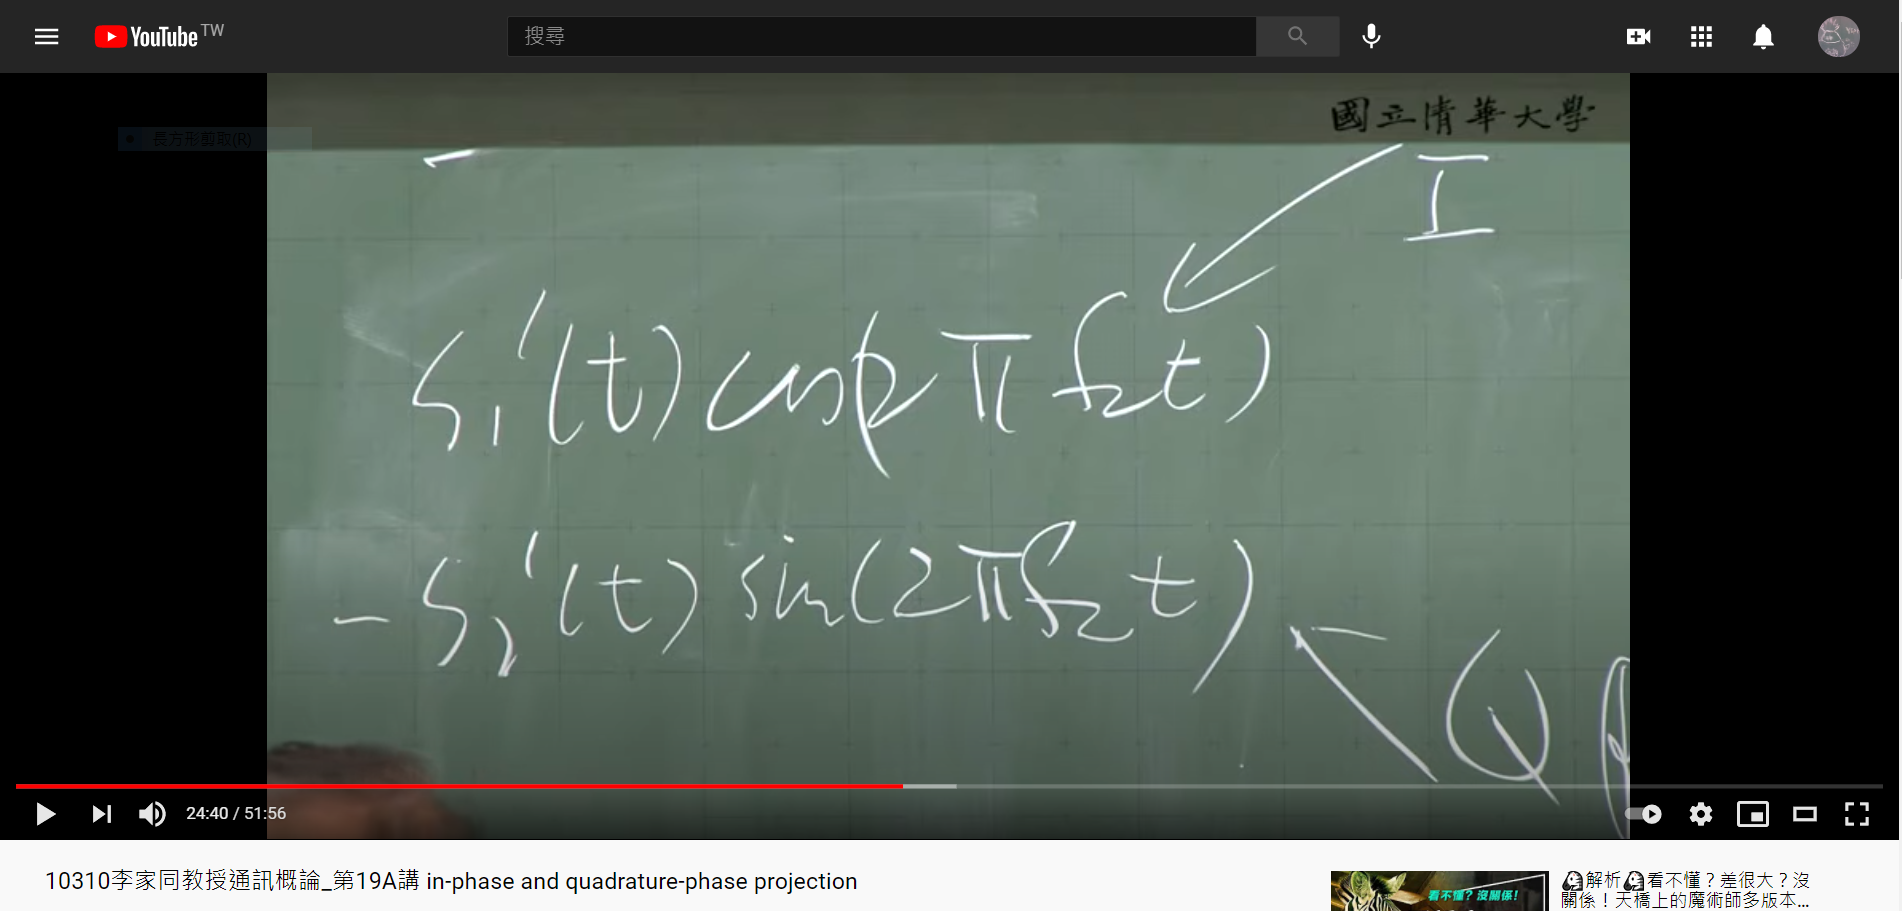 YouTube TW
搜尋
長方形剪取(R)
國立清華大學
I
S₁'(t) cos(2πf₂t)
-S₂'(t) sin(2πf₂t)
Q
24:40 / 51:56
10310李家同教授通訊概論_第19A講 in-phase and quadrature-phase projection
看不懂？沒關係！
解析 看不懂？差很大？沒
關係！天橋上的魔術師多版本...